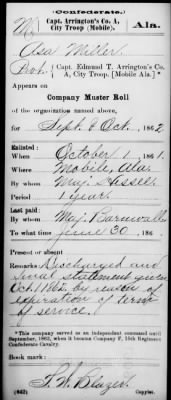 Confederate.
M Capt. Arrington's Co. A, Ala.
City Troop (Mobile).
Asa Miller
Pvt. Capt. Edmund T. Arrington's Co.
A, City Troop. (Mobile Ala.) *
Appears on
Company Muster Roll
of the organization named above,
for Sept & Oct, 1862
Enlisted:
When October 1, 1861.
Where Mobile, Ala.
By whom Maj. Hessee
Period 1 year.
Last paid:
By whom Maj. Barnwall
To what time June 30, 186
Present or absent
Remarks: Discharged and
final statement given
Oct. 1/62, by reason of
expiration of term
of service.
*This company served as an independent command until
September, 1863, when it became Company F, 15th Regiment
Confederate Cavalry.
Book mark:
(642) Copyist.